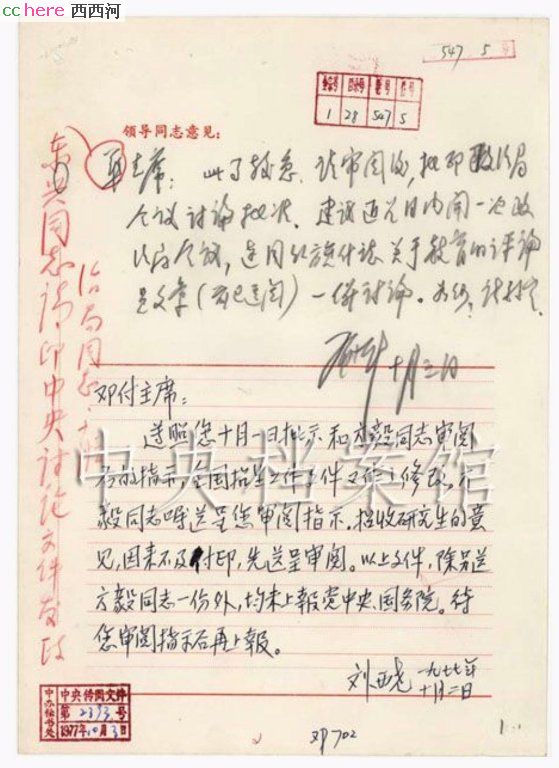 cchere 西西河
547 5 号
全宗号 目录号 卷号 件号
1 28 547 5
领导同志意见：
华主席：此事较急，请审阅后，批印政治局
会议讨论批决。建议近几日内开一次政
治局会议，连同红旗杂志关于教育的评论
员文章（前已送阅）一併讨论。
十月三日
东兴同志：请印中央讨论文件发政
治局同志
邓付主席：
遵照您十月一日批示和方毅同志审阅
后的指示，全国招生工作文件又作了修改。方
毅同志嘱送呈您审阅指示。招收研究生的意
见，因来不及付印，先送呈审阅。以上文件，除另送
方毅同志一份外，均未上報党中央、国务院。待
您审阅指示后再上報。
刘西尧 一九七七年
十月二日
中央档案馆
中办秘书处
中央传阅文件
第2393号
1977年10月3日
邓702